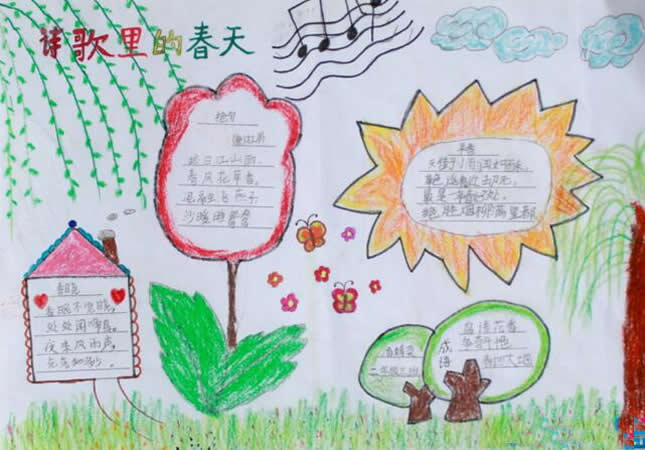 诗歌里的春天
绝句
迟日江山丽,
春风花草香。
泥融飞燕子
沙暖睡鸳鸯
早春
天街小雨润如酥,
草色遥看近却无。
最是一年春好处,
绝胜烟柳满皇都
春晓
春眠不觉晓,
处处闻啼鸟。
夜来风雨声,
花落知多少。
成语
鸟语花香
大地
二年级